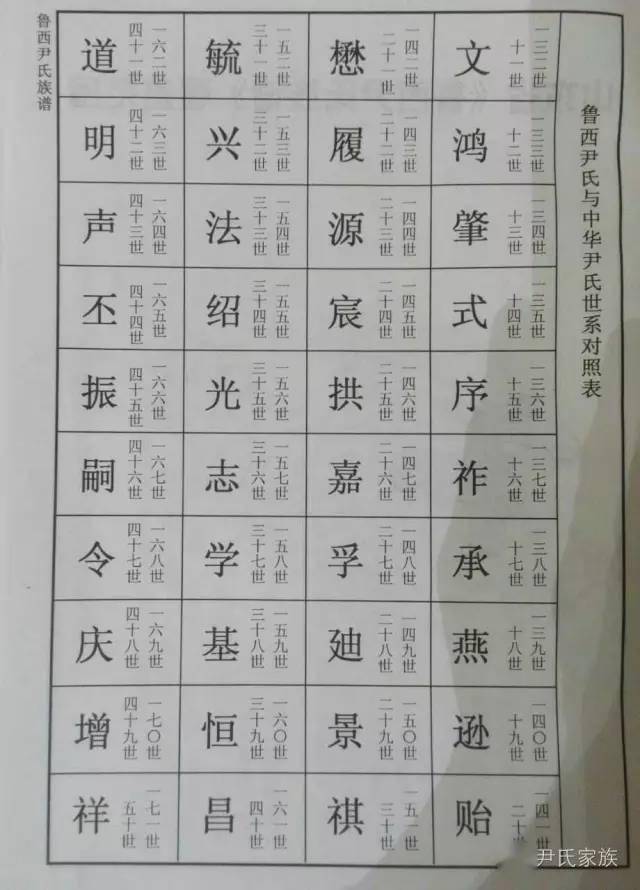 鲁西尹氏与中华尹氏世系对照表
一三二世
十一世
文
一三三世
十二世
鸿
一三四世
十三世
肇
一三五世
十四世
式
一三六世
十五世
序
一三七世
十六世
祚
一三八世
十七世
承
一三九世
十八世
燕
一四〇世
十九世
逊
一四一世
二十
贻
一四二世
二十一世
懋
一四三世
二十二世
履
一四四世
二十三世
源
一四五世
二十四世
宸
一四六世
二十五世
拱
一四七世
二十六世
嘉
一四八世
二十七世
孚
一四九世
二十八世
廸
一五〇世
二十九世
景
一五一世
三十世
祺
一五二世
三十一世
毓
一五三世
三十二世
兴
一五四世
三十三世
法
一五五世
三十四世
绍
一五六世
三十五世
光
一五七世
三十六世
志
一五八世
三十七世
学
一五九世
三十八世
基
一六〇世
三十九世
恒
一六一世
四十世
昌
一六二世
四十一世
道
一六三世
四十二世
明
一六四世
四十三世
声
一六五世
四十四世
丕
一六六世
四十五世
振
一六七世
四十六世
嗣
一六八世
四十七世
令
一六九世
四十八世
庆
一七〇世
四十九世
增
一七一世
五十世
祥
鲁西尹氏族谱
尹氏家族